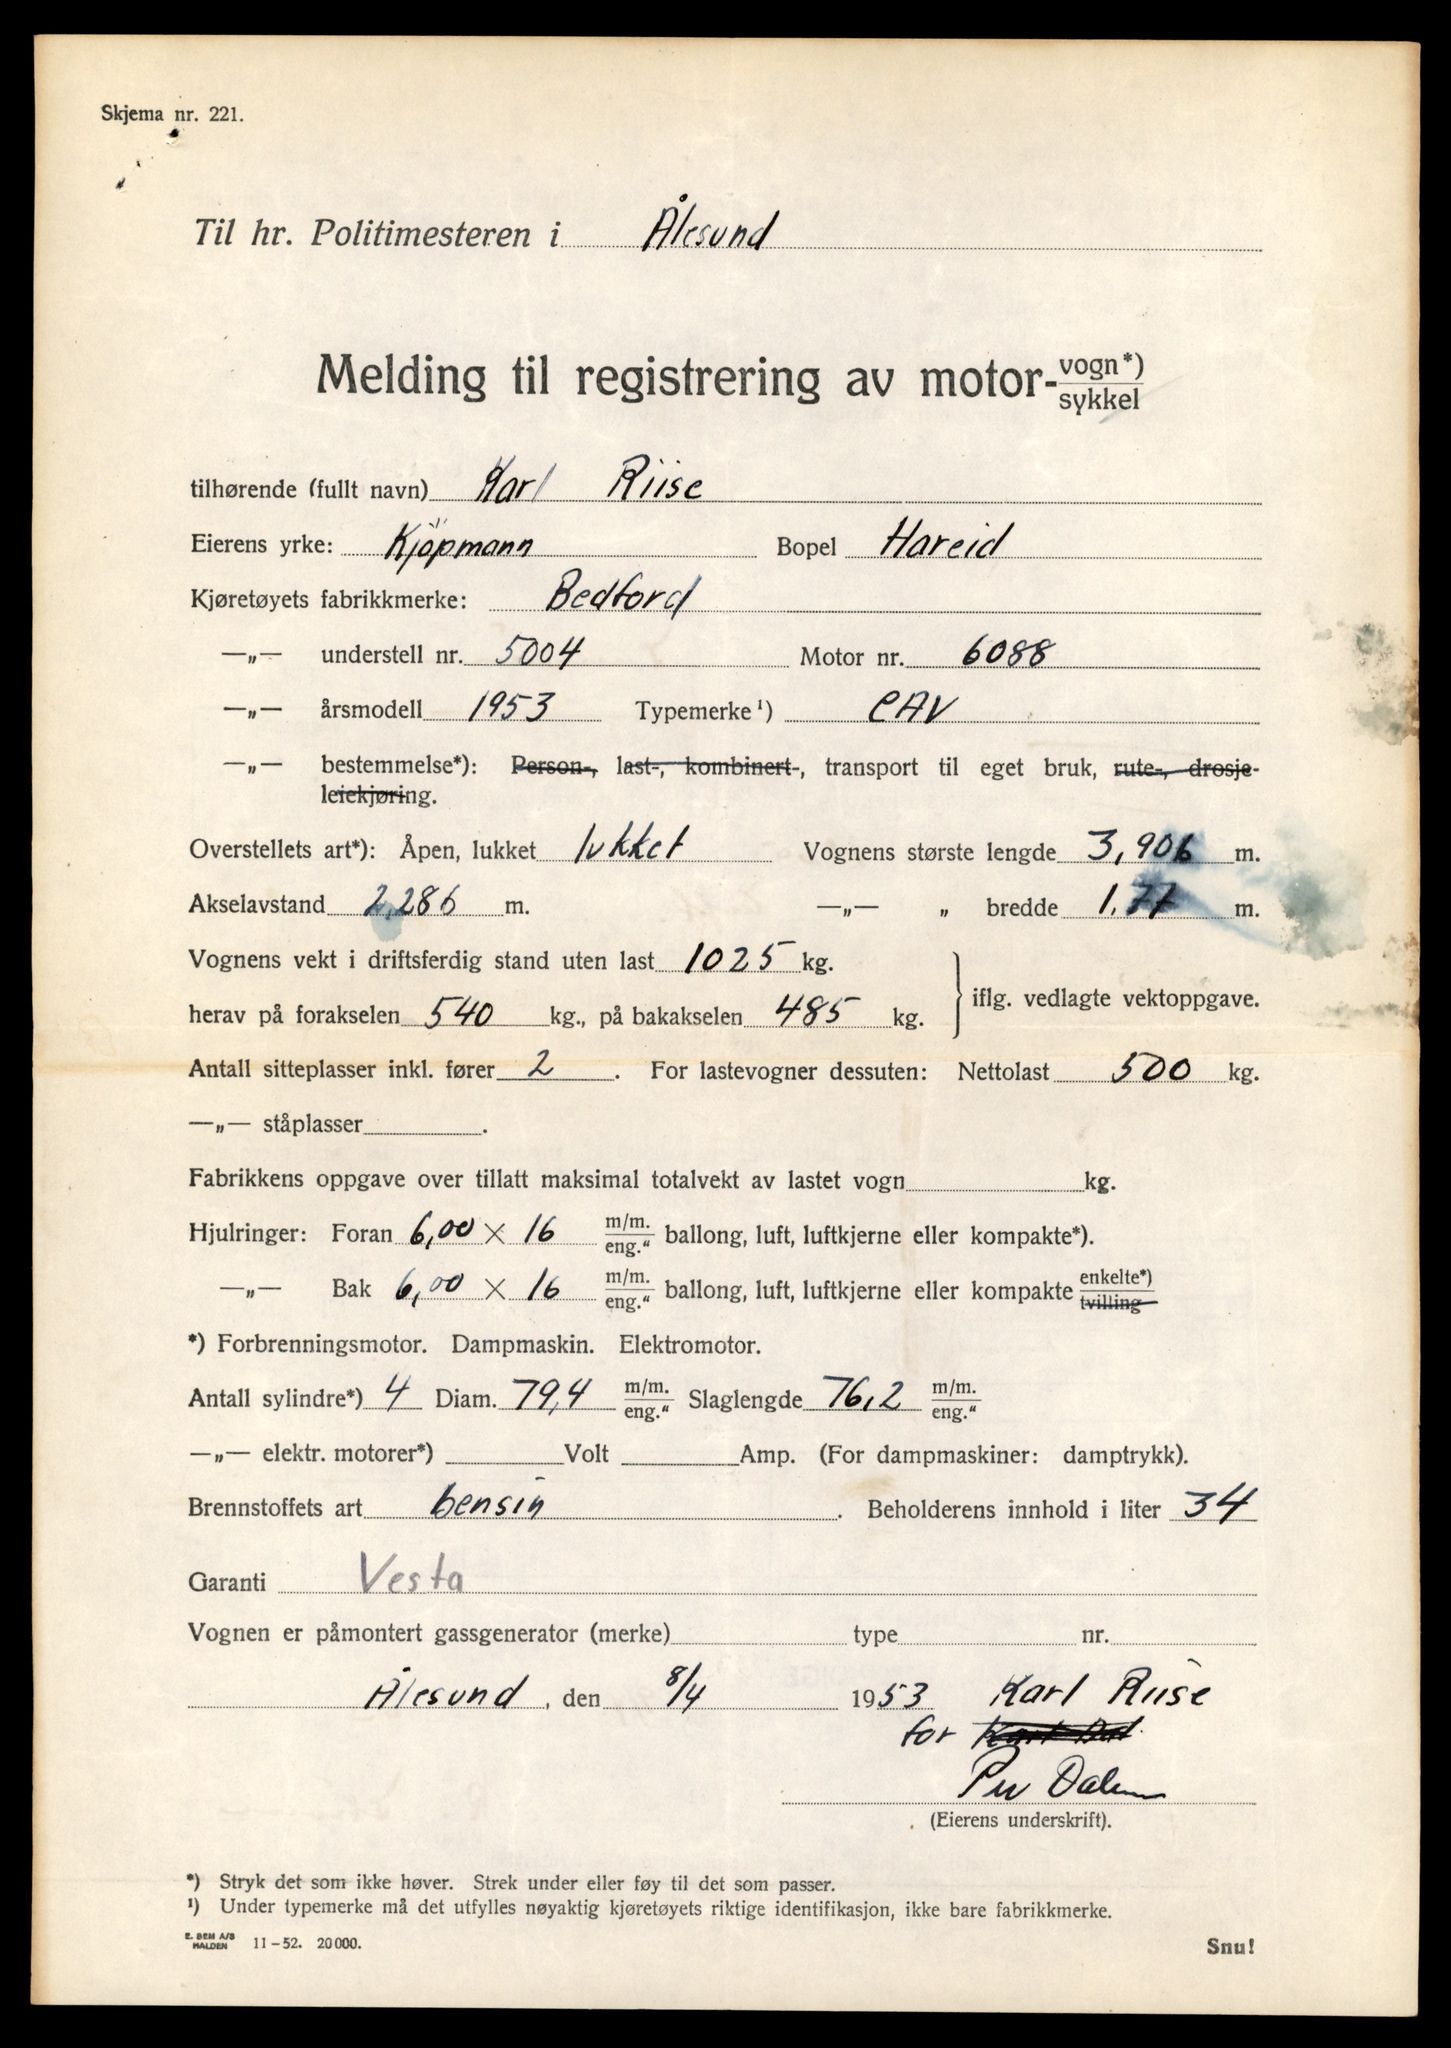 Skjema nr. 221.
Til hr. Politimesteren i Ålesund
Melding til registrering av motor-vogn*)
sykkel
tilhørende (fullt navn) Karl Riise
Eierens yrke: Kjöpmann Bopel Hareid
Kjøretøyets fabrikkmerke: Bedford
—„— understell nr. 5004 Motor nr. 6088
—„— årsmodell 1953 Typemerke¹) CAV
—„— bestemmelse*): Person-, last-, kombinert-, transport til eget bruk, rute-, drosje-
leiekjøring.
Overstellets art*): Åpen, lukket lukket Vognens største lengde 3,906 m.
Akselavstand 2,286 m. —„— „ bredde 1,77 m.
Vognens vekt i driftsferdig stand uten last 1025 kg.
herav på forakselen 540 kg., på bakakselen 485 kg. iflg. vedlagte vektoppgave.
Antall sitteplasser inkl. fører 2. For lastevogner dessuten: Nettolast 500 kg.
—„— ståplasser .
Fabrikkens oppgave over tillatt maksimal totalvekt av lastet vogn kg.
Hjulringer: Foran 6,00 × 16 m/m. eng.“ ballong, luft, luftkjerne eller kompakte*).
—„— Bak 6,00 × 16 m/m. eng.“ ballong, luft, luftkjerne eller kompakte enkelte*) tvilling
*) Forbrenningsmotor. Dampmaskin. Elektromotor.
Antall sylindre*) 4 Diam. 79,4 m/m. eng.“ Slaglengde 76,2 m/m. eng.“
—„— elektr. motorer*) Volt Amp. (For dampmaskiner: damptrykk).
Brennstoffets art bensin . Beholderens innhold i liter 34
Garanti Vesta
Vognen er påmontert gassgenerator (merke) type nr.
Ålesund, den 8/4 1953 Karl Riise
for
Per
(Eierens underskrift).
*) Stryk det som ikke høver. Strek under eller føy til det som passer.
¹) Under typemerke må det utfylles nøyaktig kjøretøyets riktige identifikasjon, ikke bare fabrikkmerke.
E. SEM A/S
HALDEN 11-52. 20000. Snu!